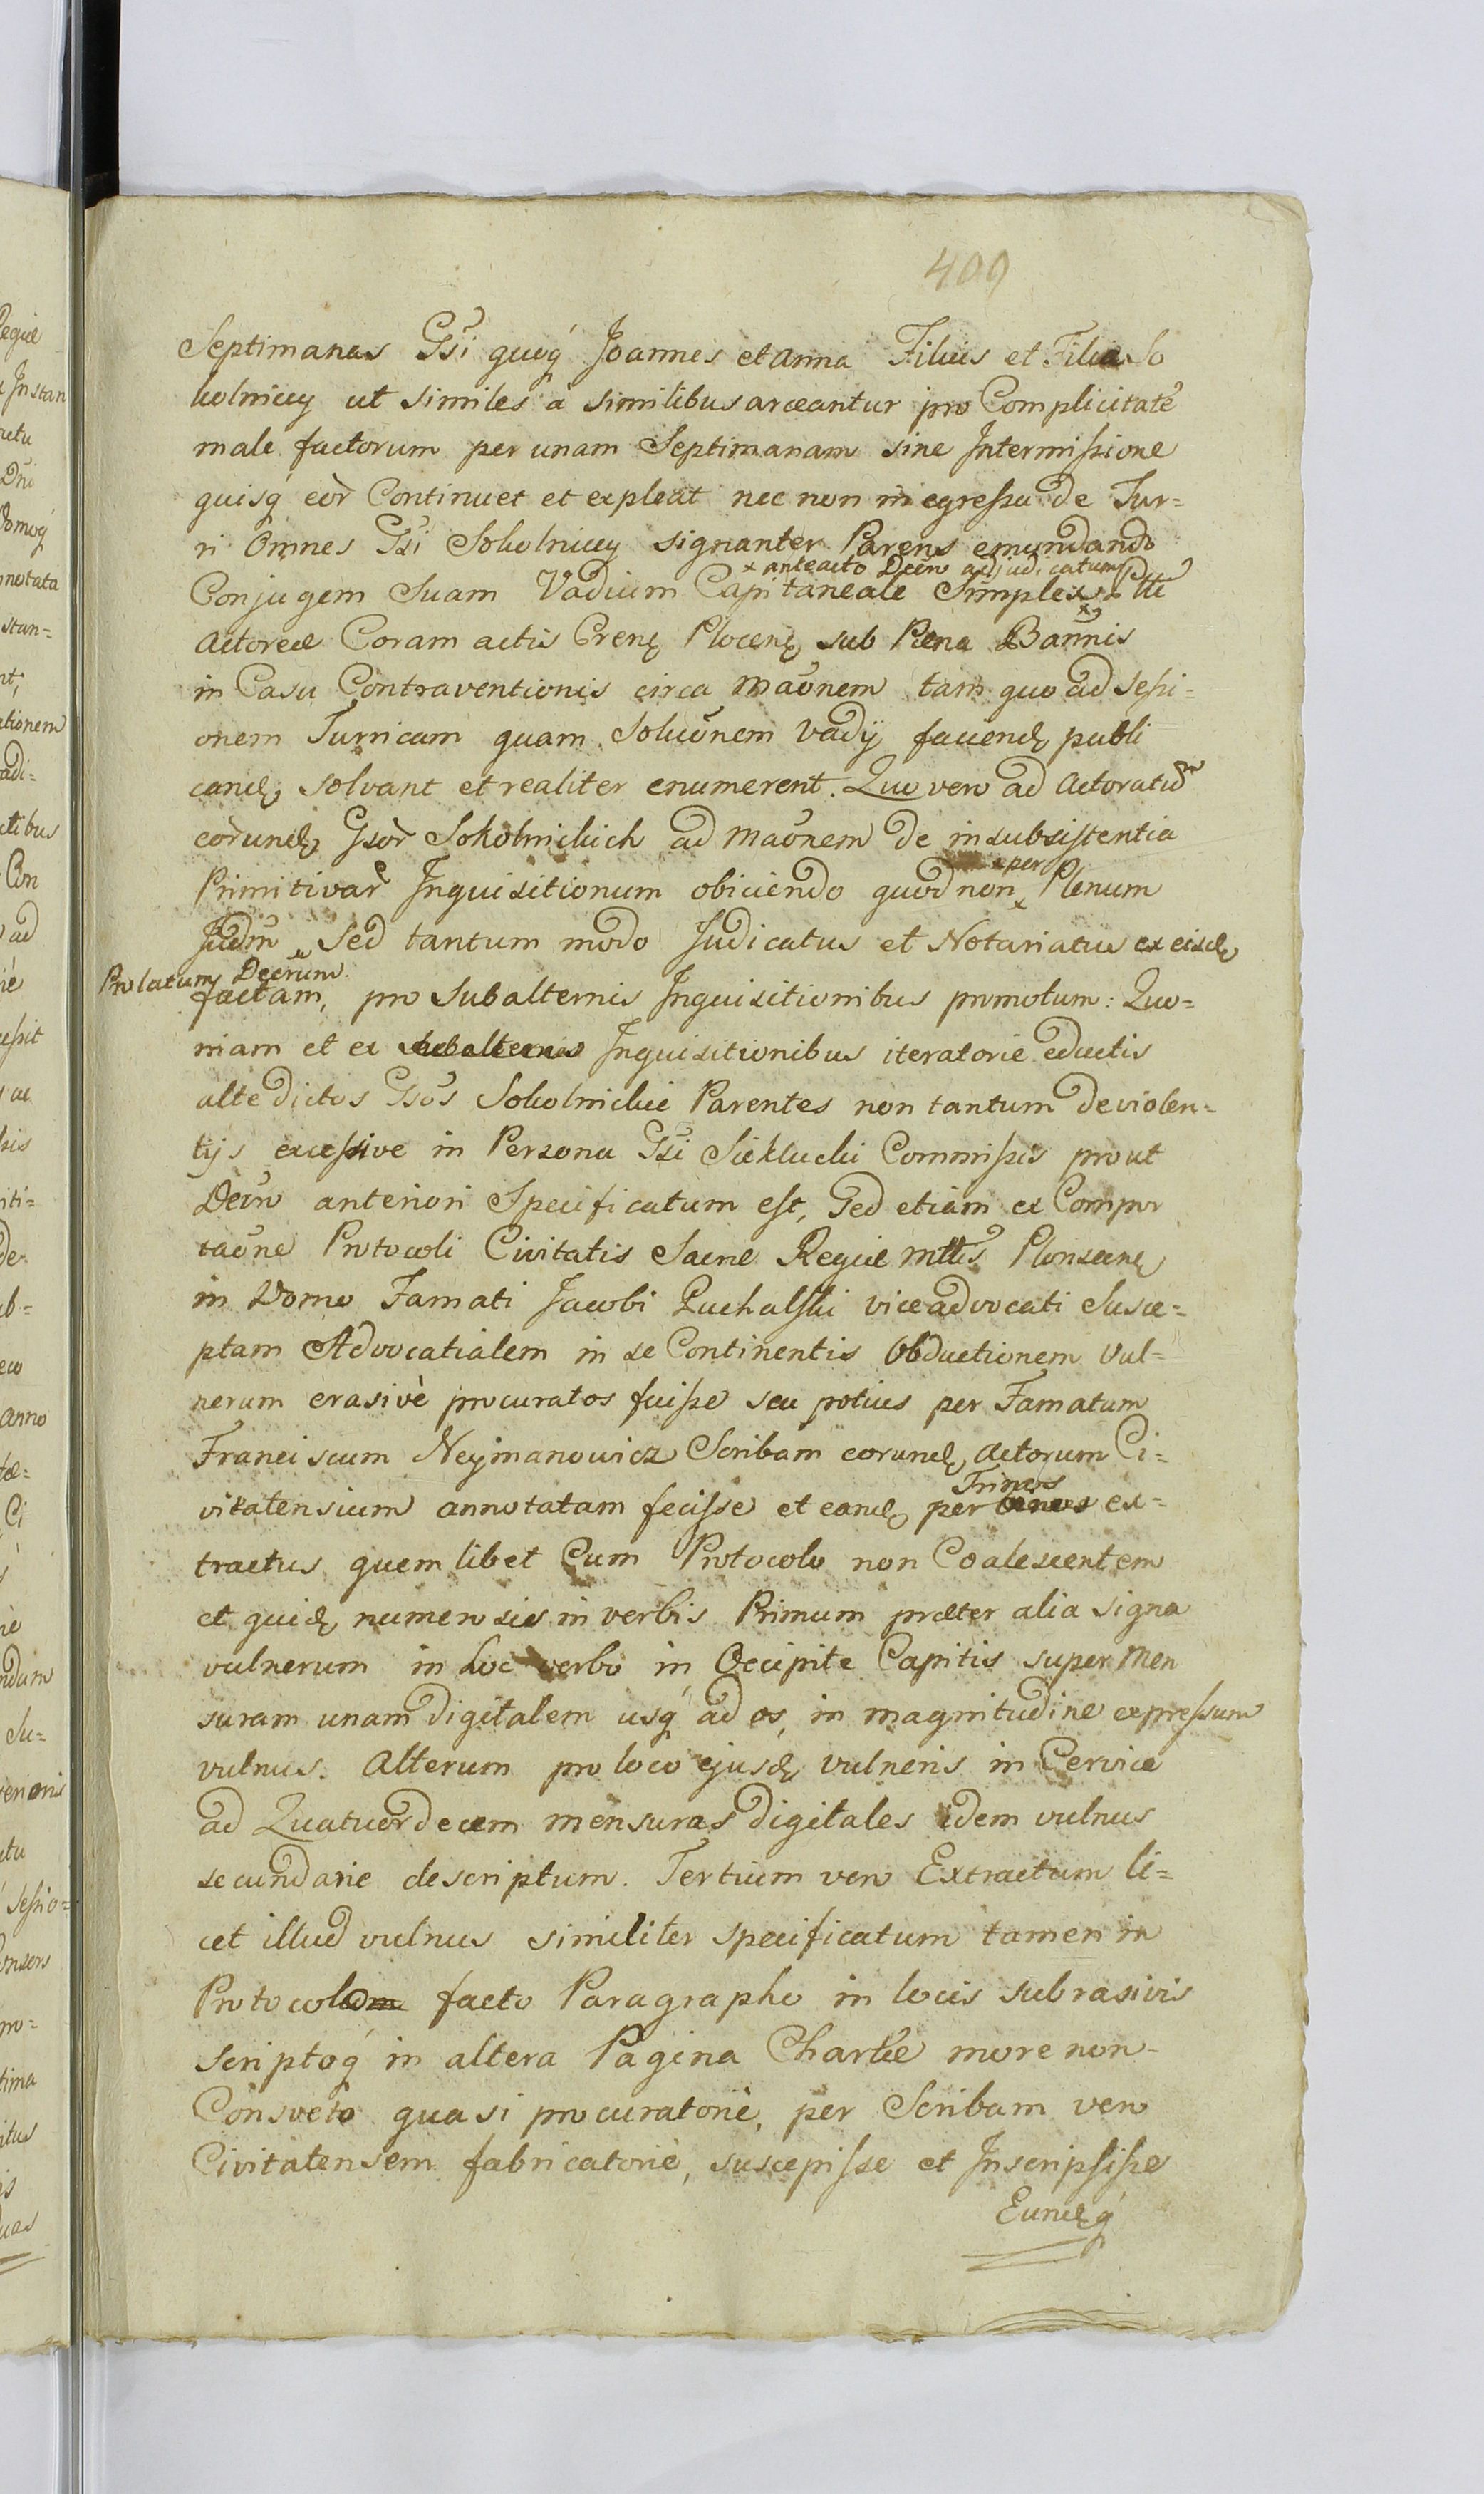 409
Septimanas Gsi quoq́ Joannes et Anna Filius et Filia So
kolniccy ut similes à similibus arceantur pro Complicitate
male factorum per unam Septimanam sine Intermissione
quisq́ eor̃ Continuet et expleat nec non in egressu de Tur-
ri Omnes Gsi Sokolniccy signanter Parens emundando
x anteacto Dcẽo adjudicatum
Conjugem Suam Vadium Capitaneale Simplex x Ptti
Actoreæ Coram actis Crenę Plocenę sub Pena Bannis
in Casu Contraventionis circa maõnem tam quo ad sessi-
onem Turricam quam Soluõnem vadÿ faciendę publi
candę solvant et realiter enumerent. Quo vero ad Actoratũ
eorundę Gsor̃ Sokolnickich ad maõnem de insubsistentia
x per
Primitivar̃ Inquisitionum obiciendo quod non x Plenum
Judm̃ x sed tantum modo Judicatus et Notariatus ex eisdę
Prolatum Decrum.
factam, pro Subalternis Inquisitionibus promotum: Quo-
niam et ex Subalternis Inquisitionibus iteratorie eductis
altedictos Gsos Sokolnickie Parentes non tantum de violen-
tijs excessive in Persona Gsi Sieklucki Commissis prout
Dcẽo anteriori Specificatum est, Sed etiam ex Compor
taõne Protocoli Civitatis Sacræ Regiæ mttis Plonscenę
in Domo Famati Jacobi Puchalski viceadvocati Susce-
ptam Advocatialem in se Continentis Obductionem Vul-
nerum erasivè procuratos fuisse seu potius per Famatum
Franciscum Neymanowicz Scribam eorundę Actorum Ci-
Trinos
vitatensium annotatam fecisse et eandę per ex-
tractus quemlibet Cum Protocolo non Coalescentem
et quidę numero sic in verbis Primum præter alia signa
vulnerum in hoc verbo in Occipite Capitis super Men
suram unam digitalem usq́ ad os, in magnitudine expressum
vulnus. Alterum pro loco ejusdę vulneris in Cervice
ad Quatuordecem mensuras digitales idem vulnus
secundarie descriptum. Tertium vero Extractum li-
cet illud vulnus similiter specificatum tamen in
Protocolo facto Paragrapho in locis subrasivis
scriptoq́ in altera Pagina Chartæ more non-
Consveto quasi procuratoriè, per Scribam vero
Civitatensem fabricatoriè, suscepisse et Inscripsisse
Eundęq́